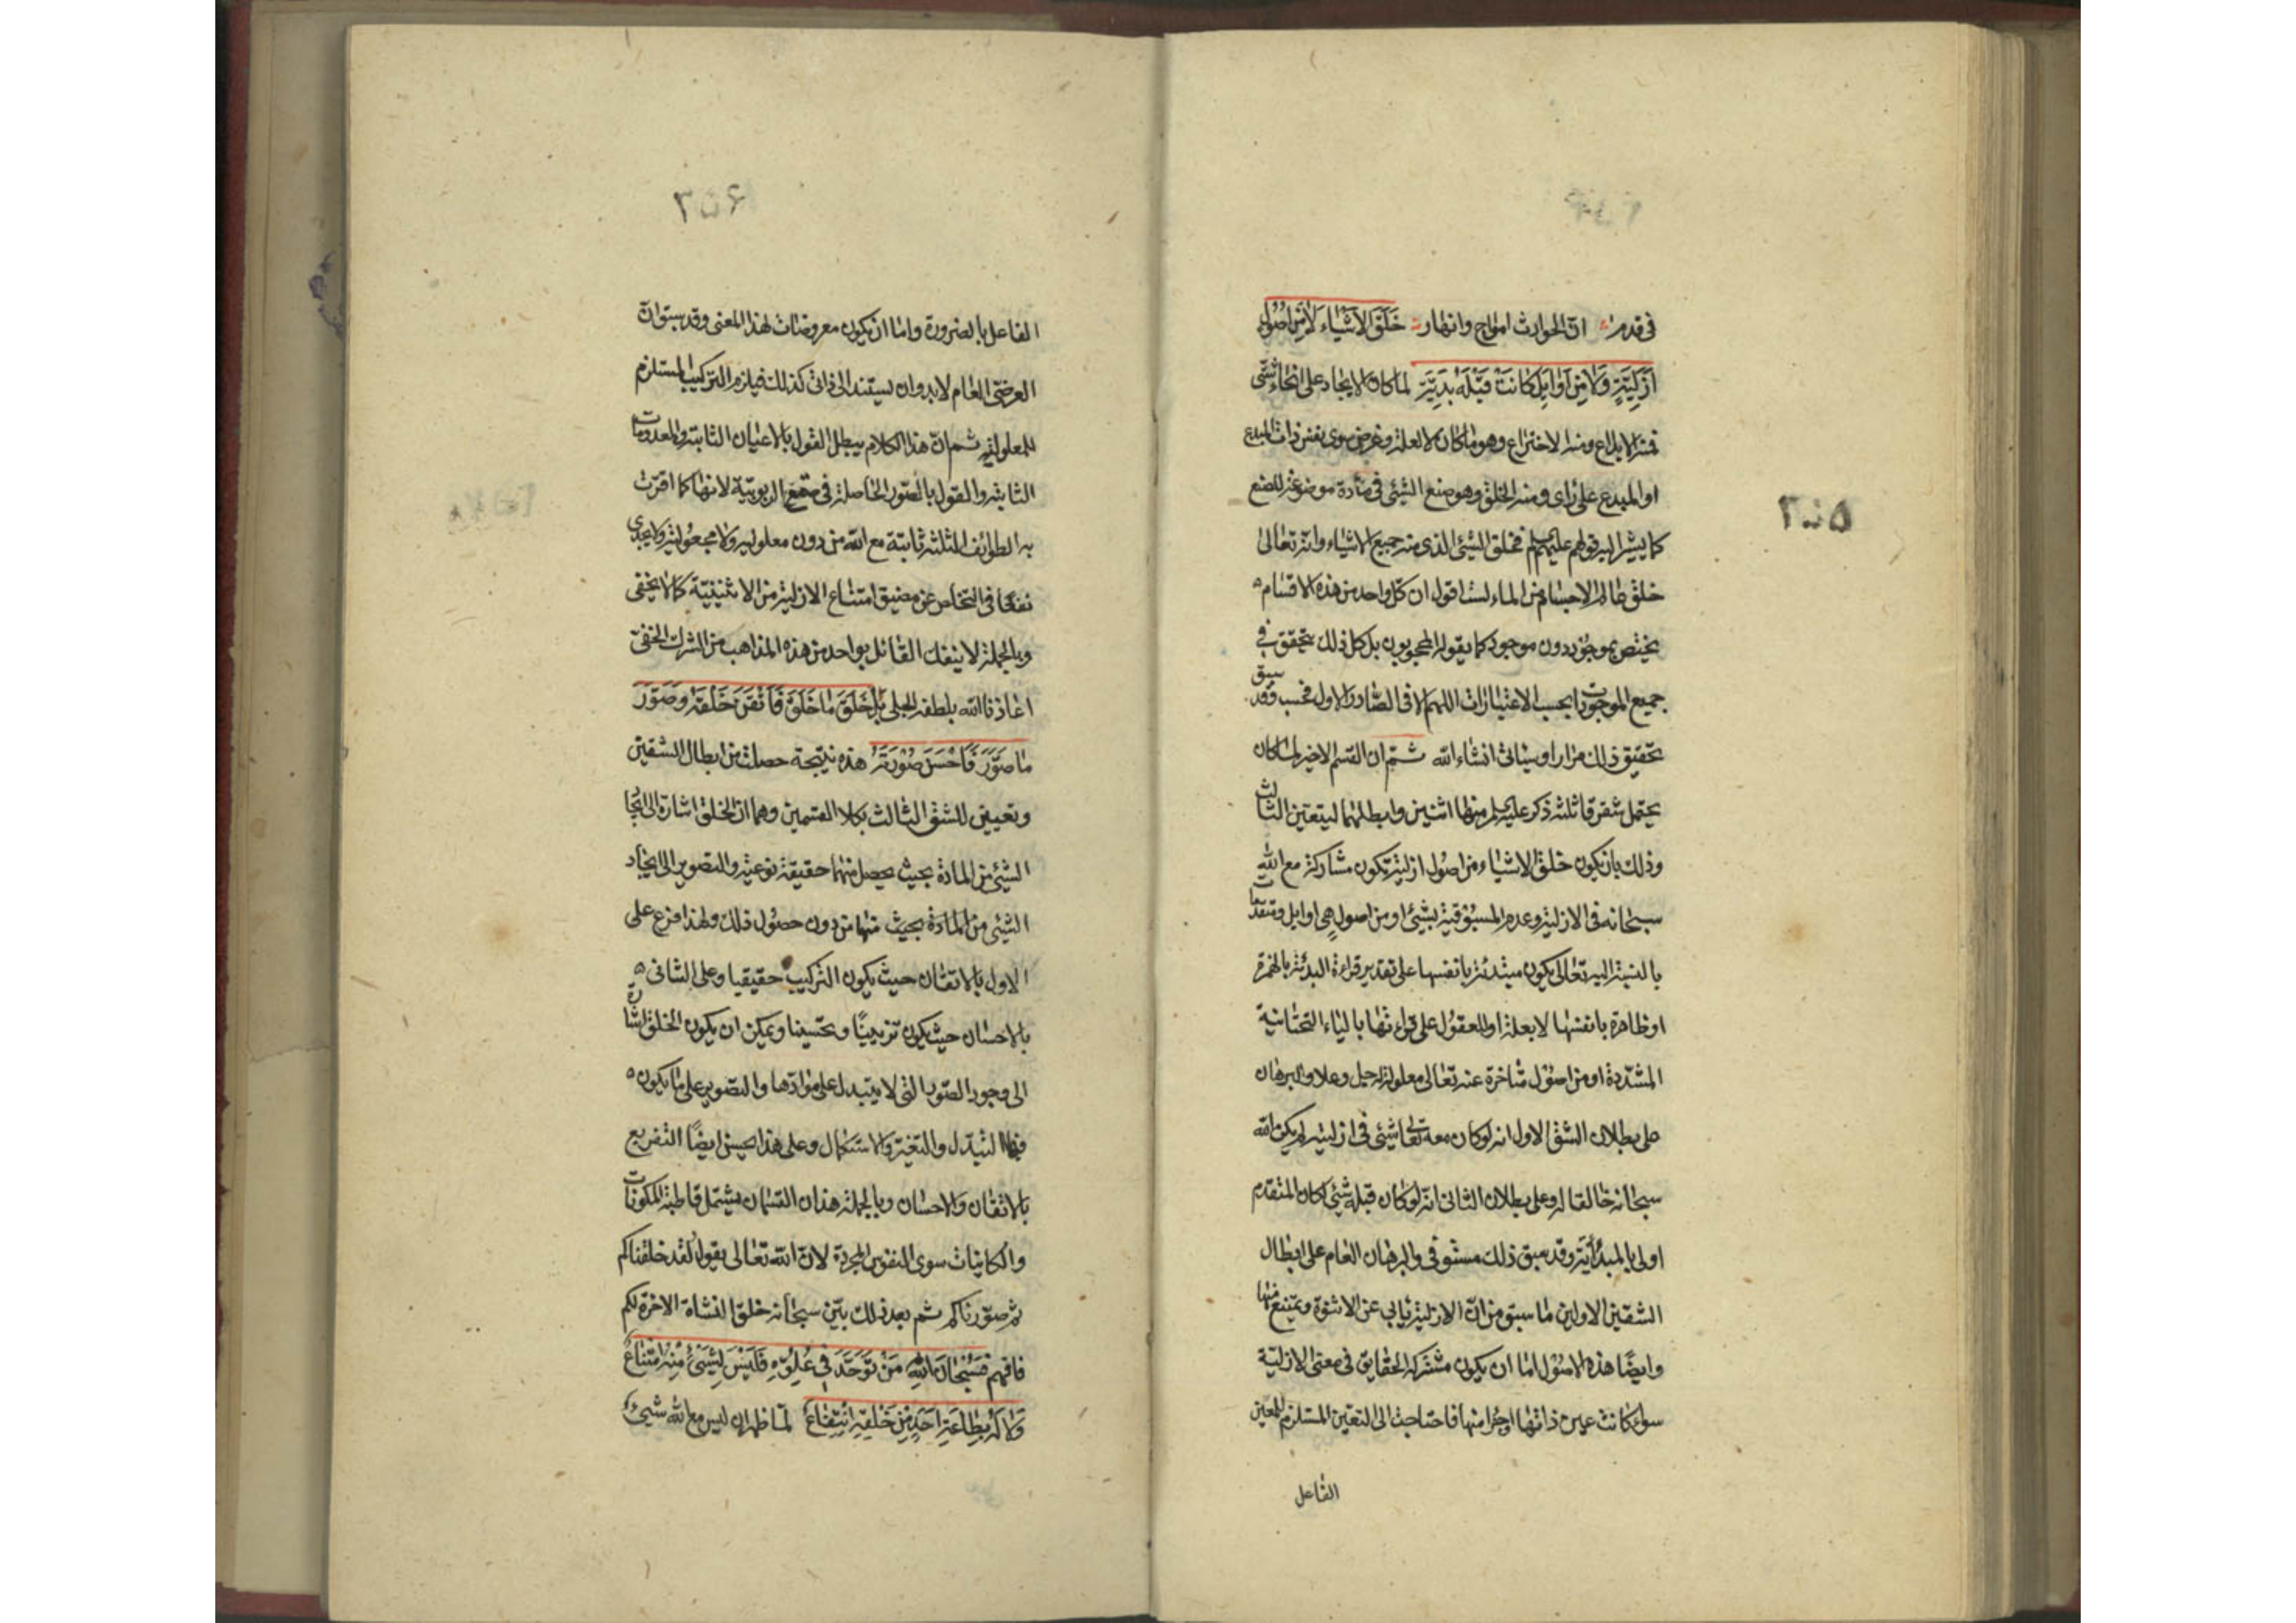 في قدم ؞ ان الحوادث امواج وانهار ؞ خَلَقَ الاَشْيَاءَ لاٰ مِنْ اُصُولٍ
اَزَلِيَّةٍ وَلاٰ مِنْ اَوَايِلَ كَانَتْ قَبْلَهُ بَدِيَّةً لما كان الايجاد على انحاء شتى
فمنه الابداع ومنه الاختراع وهو ما كان لا لعلة وغرض سوى نفس ذات المبدع
او المبدع على راى ومنه الخلق وهو صنع الشيئ في مادة موضوعة للصنع
كما يشير اليه قولهم عليهم السلم فخلق الشيئ الذى منه جميع الاشياء وانه تعالى
خلق الاجسام من الماء لست اقول ان كل واحد من هذه الاقسام
يختص بموجود دون موجود كما يقوله المحجوبون بل كل ذلك يتحقق في
جميع الموجودات بحسب الاعتبارات اللهم الا في الصادر الاول فحسب وقد سبق
تحقيق ذلك مرارا وسياتى انشاء الله ثم ان القسم الاخير لما كان
يحتمل شقوقا ثلثة ذكر عليه السلم منها اثنين وابطلهما ليتعين الثالث
وذلك بان يكون خلق الاشياء من اصول ازلية تكون مشاركة مع الله
سبحانه في الازلية وعدم المسبوقية بشيئ او من اصول هي اوايل ومتقدمات
بالنسبة اليه تعالى يكون مبتدئة بانفسها على تقدير قراءة البدئة بالهمزة
او ظاهرة بانفسها لا بعلة او للعقول على قراءتها بالياء التحتانية
المشددة او من اصول متاخرة عنه تعالى معلولة له جل وعلا والبرهان
على بطلان الشق الاول انه لو كان معه تعالى شيئ في ازليته لم يكن الله
سبحانه خالقا له وعلى بطلان الثانى انه لو كان قبله شيئ لكان المتقدم
اولى بالمبدأية وقد سبق ذلك مستوفى والبرهان العام على ابطال
الشقين الاولين ما سبق من ان الازلية يابى عن الاثنوة ويمتنع منها
وايضا هذه الاصول اما ان يكون مشتركة الحقايق في معنى الازلية
سواء كانت عين ذاتها او جزء منها فاحتاجت الى التعين المستلزم للمعين
الفاعل
٢٥٥
٢٥۶
الفاعل بالضرورة واما ان يكون معروضات لهذا المعنى وقد سبق ان
العرضى العام لا بد وان يستند الى ذاتى كذلك فيلزم التركيب المستلزم
للمعلولية ثم ان هذا الكلام يبطل القول بالاعيان الثابتة والمعدومات
الثابتة والقول بالصور الحاصلة في صقع الربوبية لانها كما اقرت
به الطوايف الثلثة ثابتة مع الله من دون معلولية ولا مجعولية ولا يجدى
نفعا في التخلص عن مضيق امتناع الازلية من الاثنينية كما لا يخفى
وبالجملة لا ينفك القائل بواحد من هذه المذاهب من الشرك الخفى
اعاذنا الله بلطفه الجلى بَلْ خَلَقَ مٰا خَلَقَ فَاَتْقَنَ خَلْقَهُ وَصَوَّرَ
مٰا صَوَّرَ فَاَحْسَنَ صُوْرَتَهُ هذه نتيجة حصلت من ابطال الشقين
وتعيين للشق الثالث بكلا القسمين وهما ان الخلق اشارة الى ايجاد
الشيئ من المادة بحيث يحصل منهما حقيقة نوعية والتصوير الى ايجاد
الشيئ من المادة بحيث منهما من دون حصول ذلك ولهذا فرع على
الاول بالاتقان حيث يكون التركيب حقيقيا وعلى الثانى
بالاحسان حيث يكون تزيينًا وتحسينا ويمكن ان يكون الخلق اشارة
الى وجود الصور التى لا يتبدل على موادها والتصوير على ما يكون
فيها التبدل والتغير والاستكمال وعلى هذا يحسن ايضًا التفريع
بالاتقان والاحسان وبالجملة هذان القسمان يشتمل قاطبة المكونات
والكاينات سوى النفوس المجردة لان الله تعالى يقول لقد خلقناكم
ثم صورناكم ثم بعد ذلك بيّن سبحانه خلق النشاة الاخرة لكم
فافهم فَسُبْحَانَ اللهِ مَنْ تَوَحَّدَ فِي عُلُوِّهِ فَلَيْسَ لِشَيْءٍ مِنْهُ امْتِنَاعٌ
وَلاٰ لَهُ بِطٰاعَةِ اَحَدٍ مِنْ خَلْقِهِ اِنْتِفٰاعٌ لما ظهر ان ليس مع الله شيئ